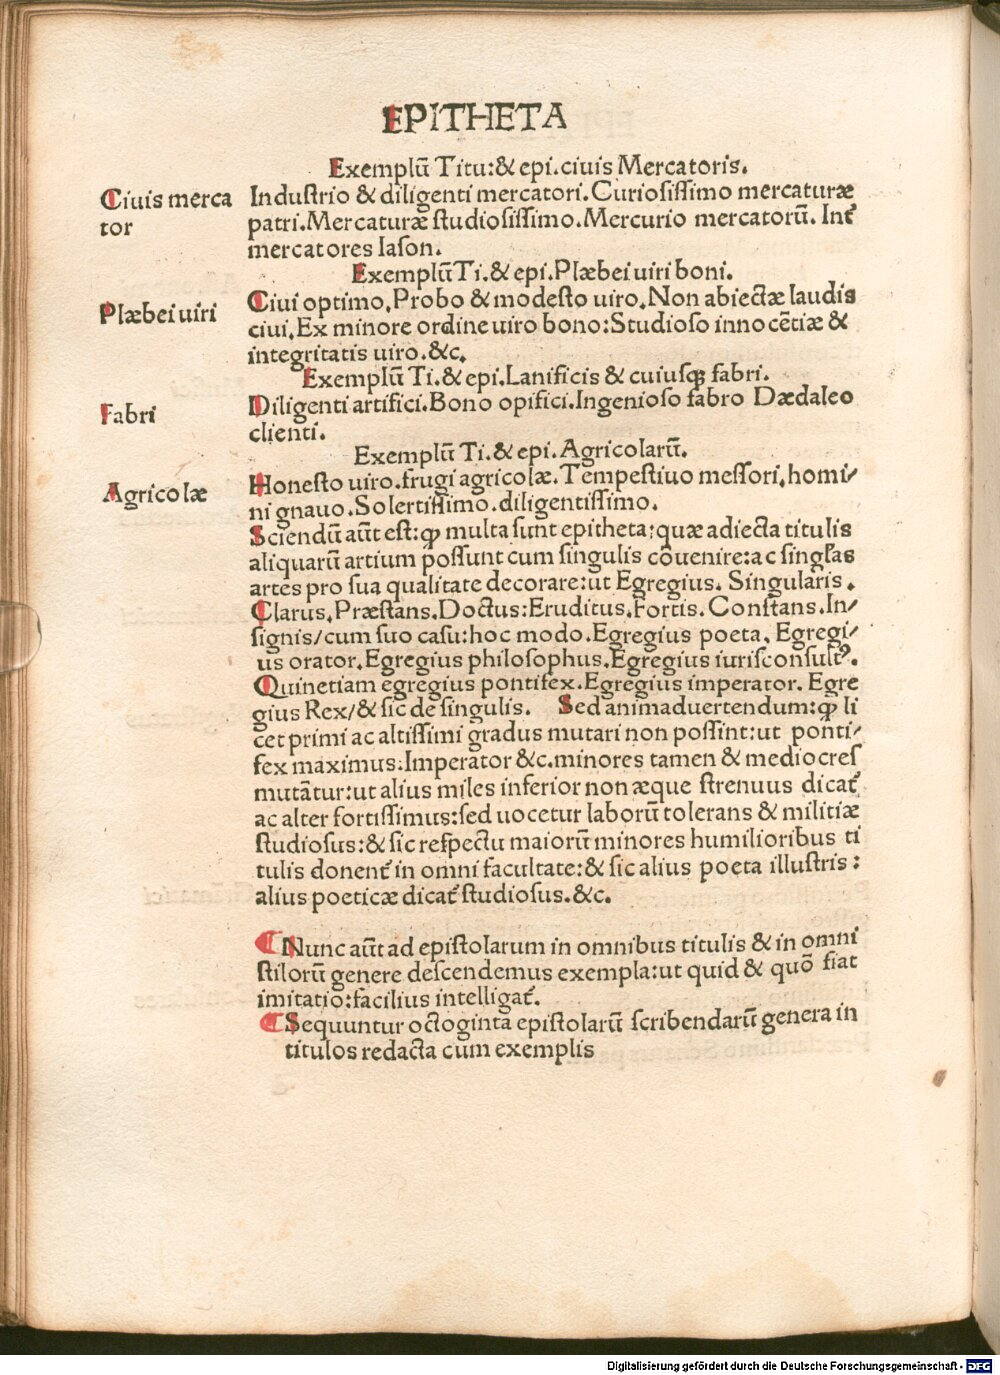 EPITHETA
Exemplū Titu:& epi.ciuis Mercatoris.
Ciuis merca
tor
Industrio & diligenti mercatori.Curiosissimo mercaturæ
patri.Mercaturæ studiosissimo.Mercurio mercatorū. Int̄
mercatores Iason.
Exemplū Ti.& epi.Plæbei uiri boni.
Plæbei uiri
Ciui optimo.Probo & modesto uiro.Non abiectæ laudis
ciui.Ex minore ordine uiro bono:Studioso innocētiæ &
integritatis uiro.&c.
Exemplū Ti.& epi.Lanificis & cuiusqꝫ fabri.
Fabri
Diligenti artifici.Bono opifici.Ingenioso fabro Dædaleo
clienti.
Exemplū Ti.& epi.Agricolarū.
Agricolæ
Honesto uiro.frugi agricolæ.Tempestiuo messori.homi/
ni gnauo.Solertissimo.diligentissimo.
Sciendū aūt est:ꝙ multa sunt epitheta:quæ adiecta titulis
aliquarū artium possunt cum singulis cōuenire:ac singl̄as
artes pro sua qualitate decorare:ut Egregius. Singularis.
Clarus.Præstans.Doctus:Eruditus.Fortis.Constans.In/
signis/cum suo casu:hoc modo.Egregius poeta. Egregi/
us orator.Egregius philosophus.Egregius iurisconsultꝰ.
Quinetiam egregius pontifex.Egregius imperator. Egre
gius Rex/& sic de singulis. Sed animaduertendum:ꝙ li
cet primi ac altissimi gradus mutari non possint:ut ponti/
fex maximus:Imperator &c.minores tamen & mediocres
mutātur:ut alius miles inferior non æque strenuus dicat̄
ac alter fortissimus:sed uocetur laborū tolerans & militiæ
studiosus:& sic respectu maiorū minores humilioribus ti
tulis donent̄ in omni facultate:& sic alius poeta illustris:
alius poeticæ dicat̄ studiosus.&c.
Nunc aūt ad epistolarum in omnibus titulis & in omni
stilorū genere descendemus exempla:ut quid & quō fiat
imitatio:facilius intelligat̄.
Sequuntur octoginta epistolarū scribendarū genera in
titulos redacta cum exemplis
Digitalisierung gefördert durch die Deutsche Forschungsgemeinschaft - DFG